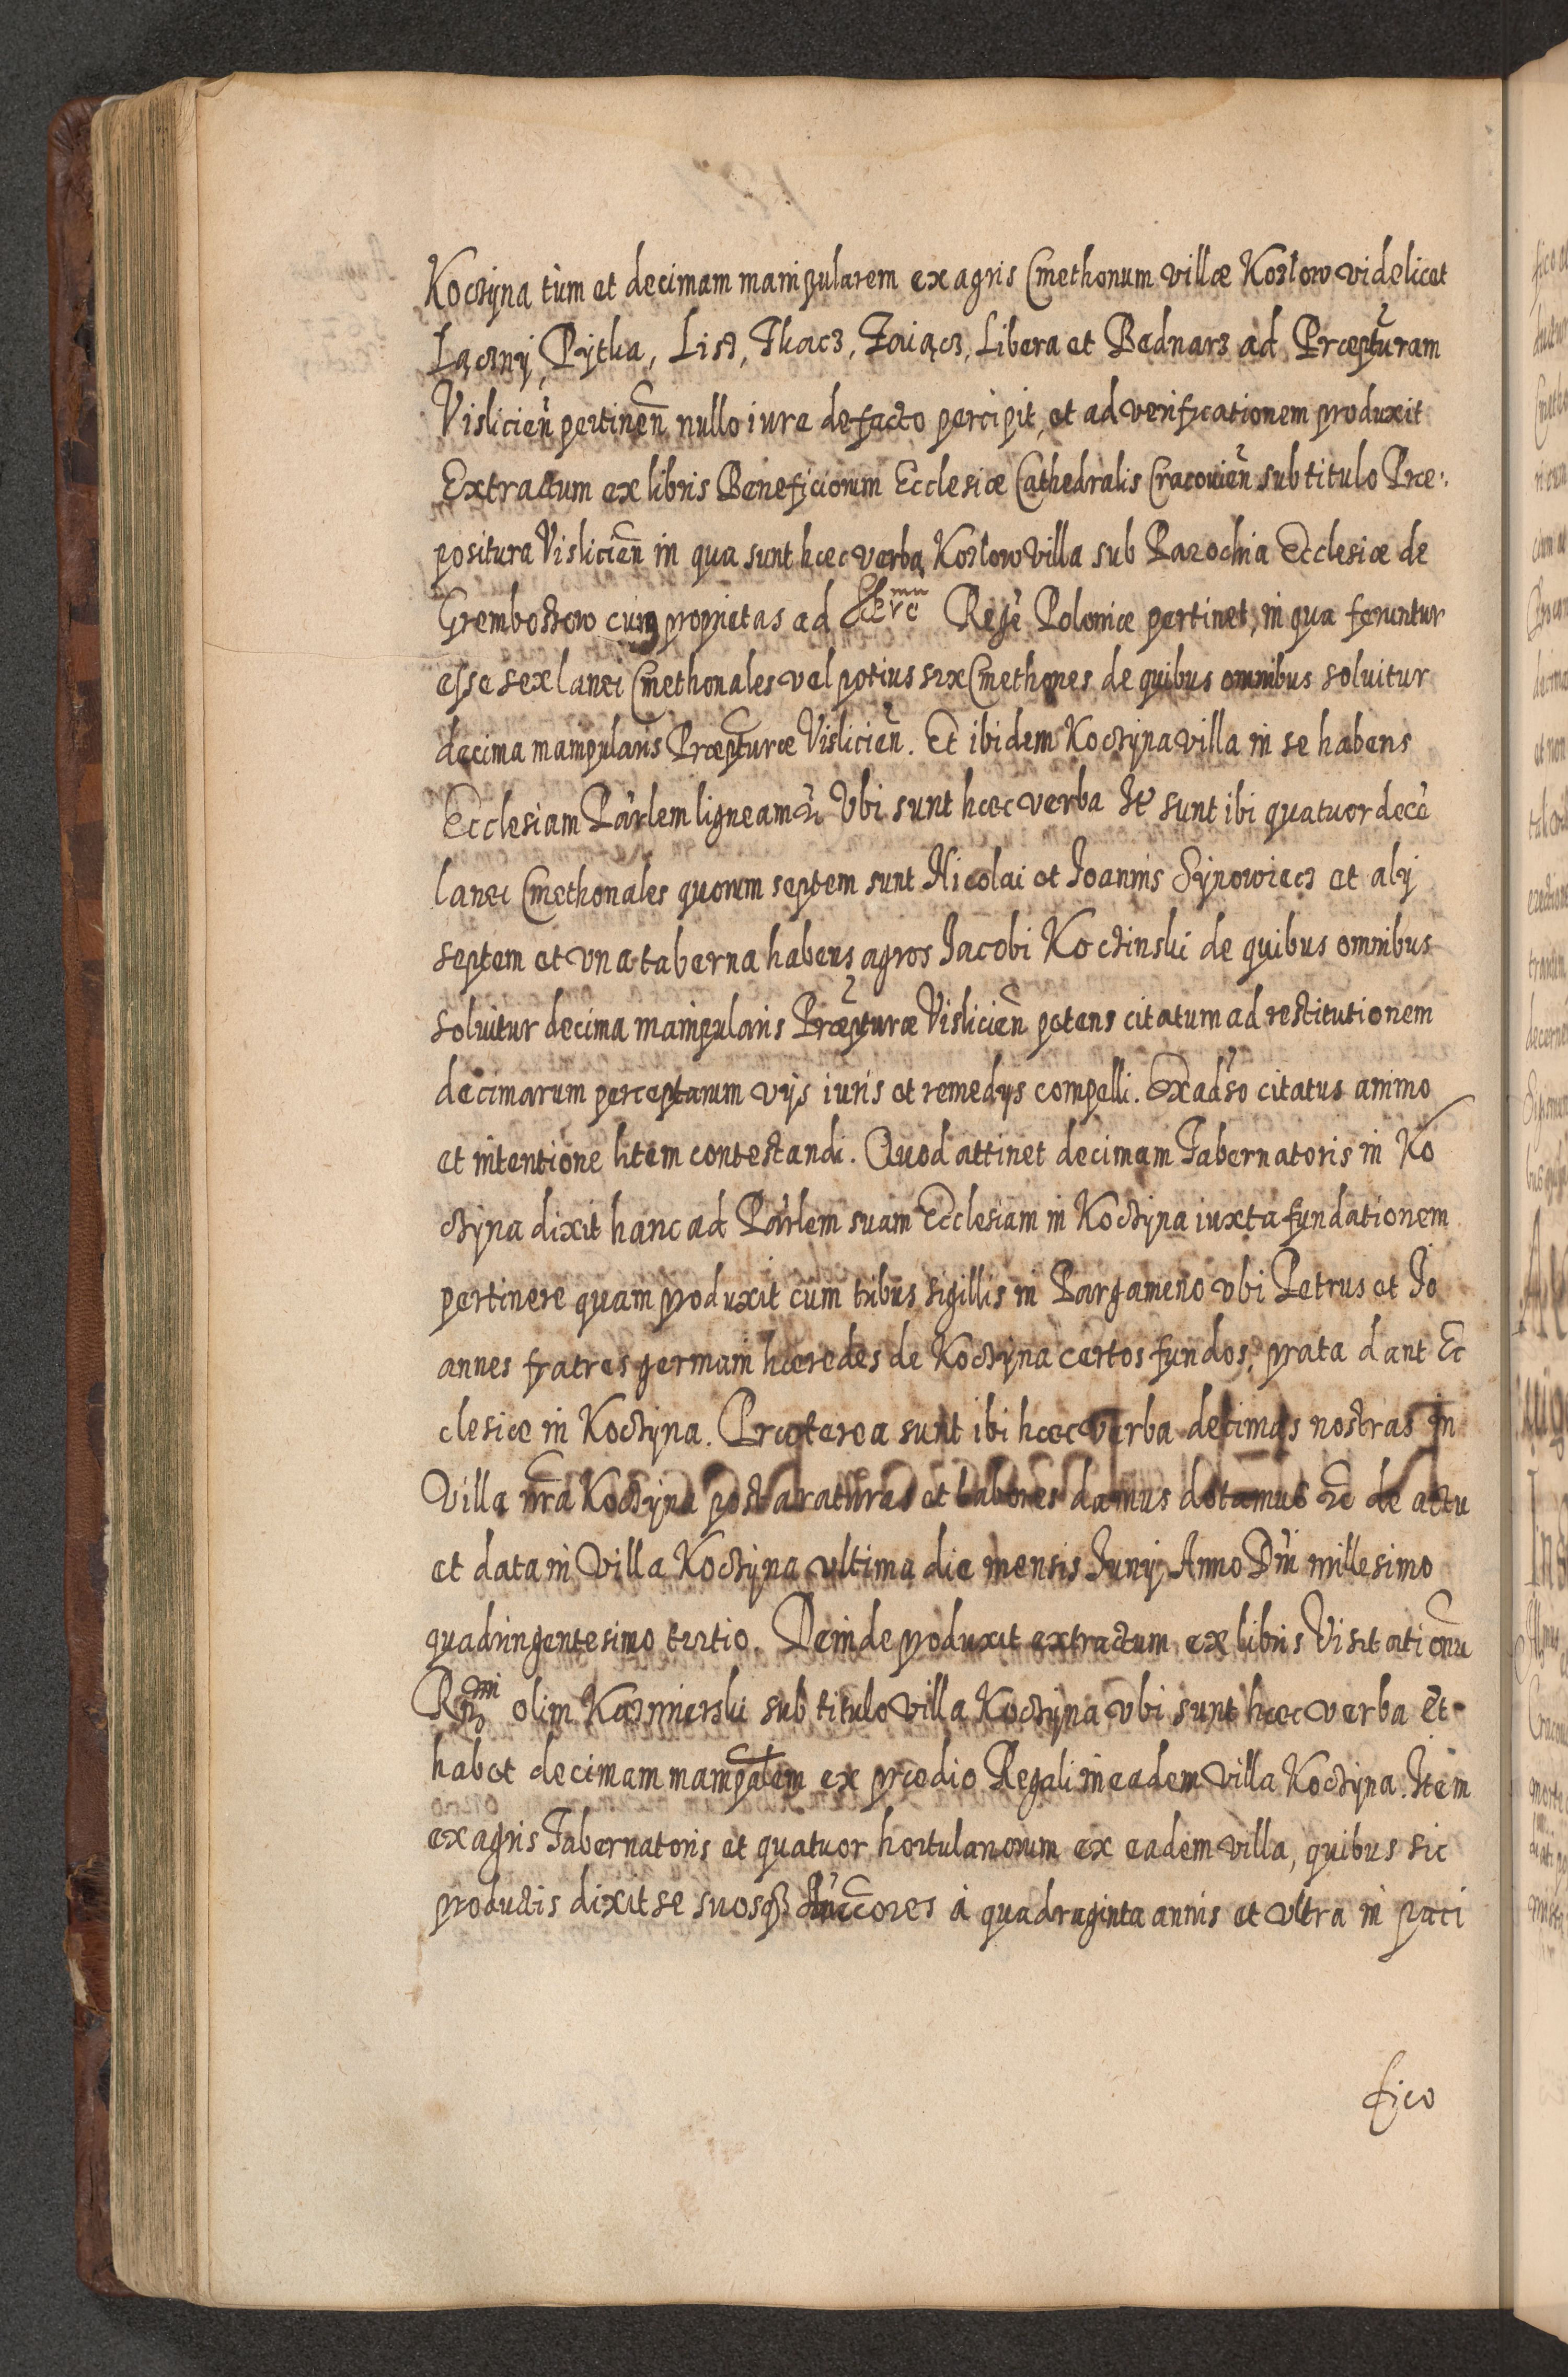 Koczyna tùm et decimam manipularem ex agris Cmethonum villæ Kozłow videlicet
Lączny, Pytka, List, Tkacz, Zaiącz, Libera et Bednarz ad Præpturam
Vislicieñ pertineñ nullo iure de facto percipit, et ad verificationem produxit
Extractum ex libris Beneficiorum Ecclesiæ Cathedralis Cracovieñ sub titulo Præ:
positura Vislicieñ in qua sunt hæc verba, Kozłow villa sub Parochia Ecclesiæ de
Gremboszow cuius proprietas ad Regẽ Poloniæ pertinet, in qua feruntur
esse sex lanei Cmethonales vel potius sex Cmethones de quibus omnibus soluitur
decima manipularis Præpturæ Vislicieñ. Et ibidem Koczyna villa in se habens
Ecclesiam Parlem ligneam Vbi sunt hæc verba Itẽ sunt ibi quatuor decẽ
lanei Cmethonales quorum septem sunt Nicolai et Joannis Synowiecz et alij
septem et vna taberna habens agros Jacobi Koczinski de quibus omnibus
soluitur decima manipularis Præpturæ Vislicieñ petens citatum ad restitutionem
decimarum perceptarum vijs iuris et remedijs compelli. Ex adso citatus animo
et intentione litem contestandi. Quod attinet decimam Tabernatoris in Ko
czyna dixit hanc ad Parlem suam Ecclesiam in Koczyna iuxta fundationem
pertinere quam produxit cum tribus sigillis in Pargameno vbi Petrus et Jo
annes fratres germani hæredes de Koczyna certos fundos, prata dant Ec
clesiæ in Koczyna. Præterea sunt ibi hæc verba decimas nostras in
Villa nra Koczyna post araturas et labores damus dotamus &c de actu
et data in Villa Koczyna vltima die mensis Junij Anno Dni millesimo
quadringentesimo tertio. Deinde produxit extractum ex libris Visitationũ
Rmi olim Kazmierski sub titulo villa Koczyna vbi sunt hæc verba Et
habet decimam manipalem ex prædio Regali in eadem villa Koczyna. Item
ex agris Tabernatoris et quatuor hortulanorum ex eadem villa, quibus sic
productis dixit se suosq̃ á quadraginta annis et vltra in paci
fico